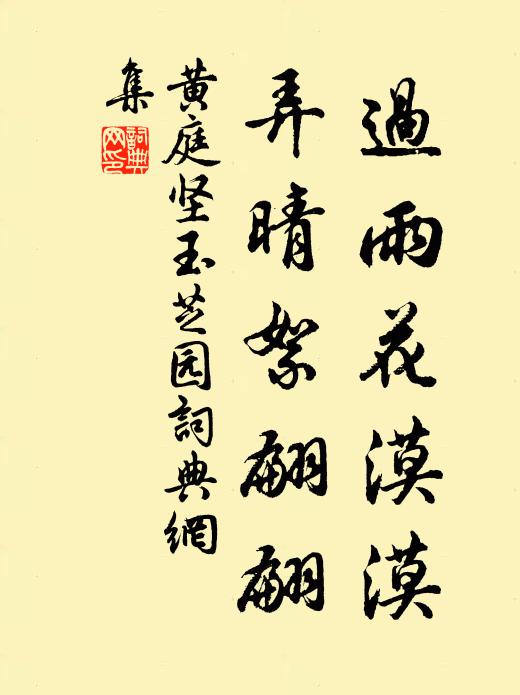 過雨花漠漠
弄晴絮翩翩
黄庭坚玉芝园詞典網
集
詞典
网印